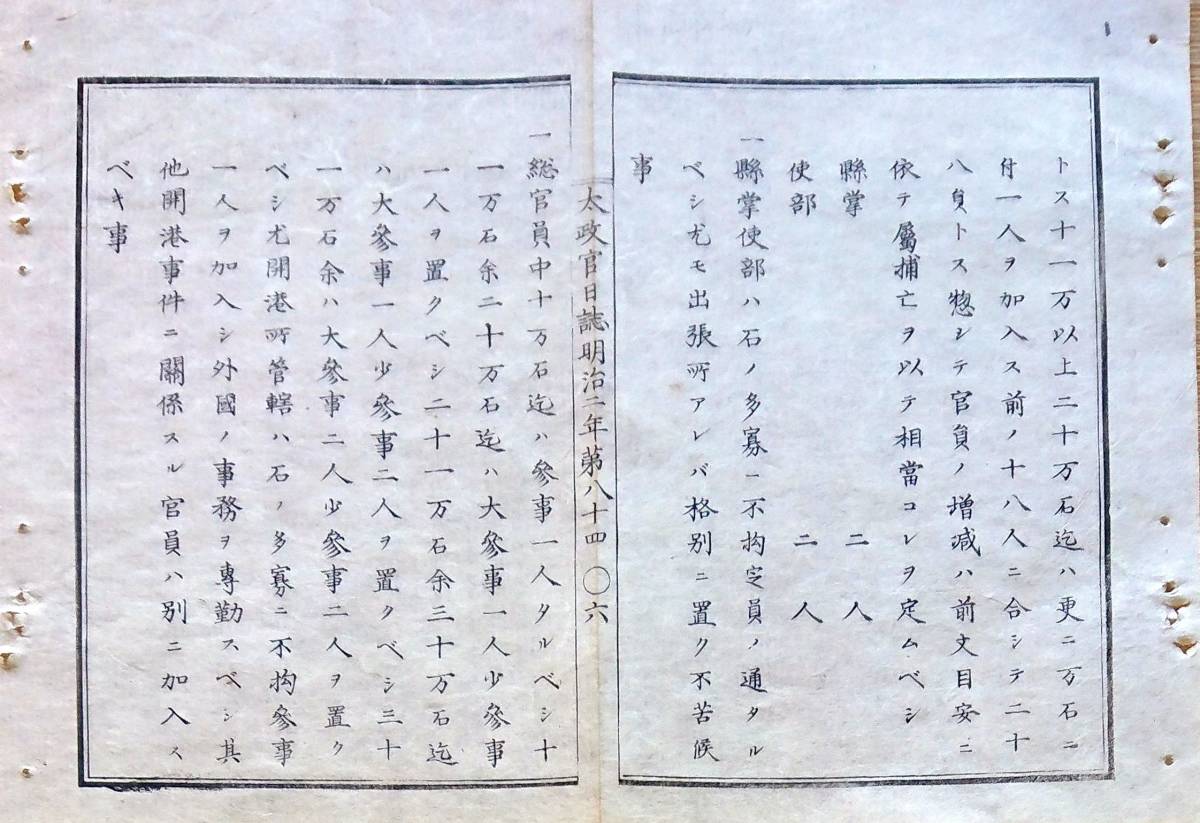 トス十一万以上二十万石迄ハ更ニ万石ニ
付一人ヲ加入ス前ノ十八人ニ合シテ二十
八員トス惣シテ官員ノ増減ハ前文目安ニ
依テ屬捕亡ヲ以テ相當コレヲ定ムベシ
縣掌 二人
使部 二人
一縣掌使部ハ石ノ多寡ニ不拘定員ノ通タル
ベシ尤モ出張所アレバ格別ニ置ク不苦候
事
太政官日誌明治二年第八十四 〇六
一総官員中十万石迄ハ參事一人タルベシ十
一万石余二十万石迄ハ大參事一人少參事
一人ヲ置クベシ二十一万石余三十万石迄
ハ大參事一人少參事二人ヲ置クベシ三十
一万石余ハ大參事二人少參事二人ヲ置ク
ベシ尤開港所管轄ハ石ノ多寡ニ不拘參事
一人ヲ加入シ外國ノ事務ヲ專勤スベシ其
他開港事件ニ關係スル官員ハ別ニ加入ス
ベキ事